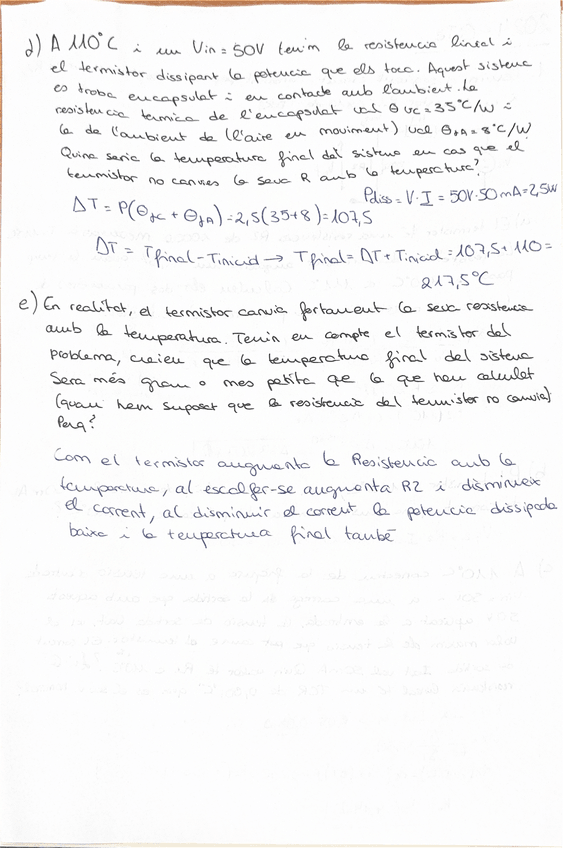 d) A 110°C i un Vin = 50V tenim la resistencia lineal i
el termistor dissipant la potencia que els toca. Aquest sistema
es troba encapsulat i en contacte amb l'ambient. La
resistencia termica de l'encapsulat val θJC = 35°C/W i
la de l'ambient de (l'aire en moviment) val θJA = 8°C/W
Quina seria la temperatura final del sistema en cas que el
termistor no canvies la seva R amb la temperatura?
Pdiss = V·I = 50V·50mA = 2,5W
ΔT = P(θJC + θJA) = 2,5(35+8) = 107,5
ΔT = Tfinal - Tinicial → Tfinal = ΔT + Tinicial = 107,5 + 110 =
217,5°C
e) En realitat, el termistor canvia fortament la seva resistencia
amb la temperatura. Tenin en compte el termistor del
problema, creieu que la temperatura final del sistema
Sera més gran o mes petita que la que heu calculat
(quan hem suposat que la resistencia del termistor no canvia)
Perq?
Com el termistor augmenta la Resistencia amb la
temperatura, al escalfar-se augmenta R2 i disminueix
el corrent, al disminuir el corrent la potencia dissipada
baixa i la temperatura final també